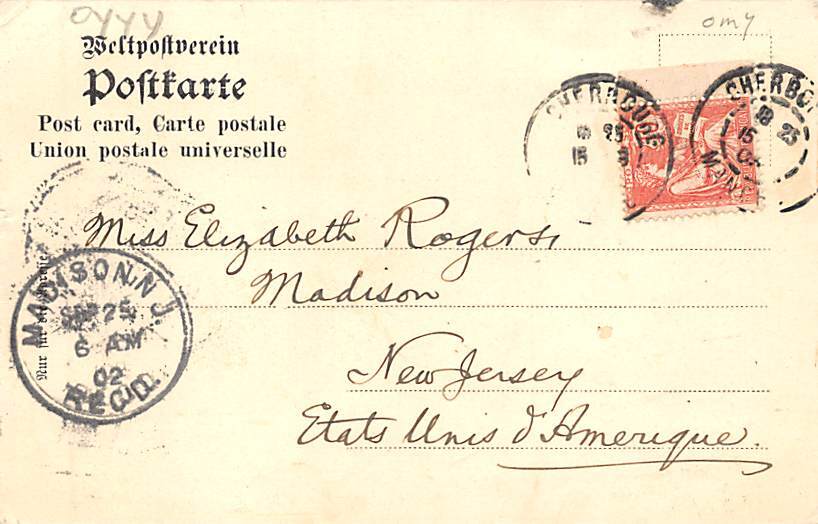 omy
Weltpostverein
Postkarte
Post card, Carte postale
Union postale universelle
CHERBOURG
15
CHERBO
18 25
15
MANCHE
Miss Elizabeth Rogers,
Madison
New Jersey
Etats Unis d'Amerique.
Nur für die Adresse
MADISON, N.J.
SEP 25
6 AM
02
REC'D.